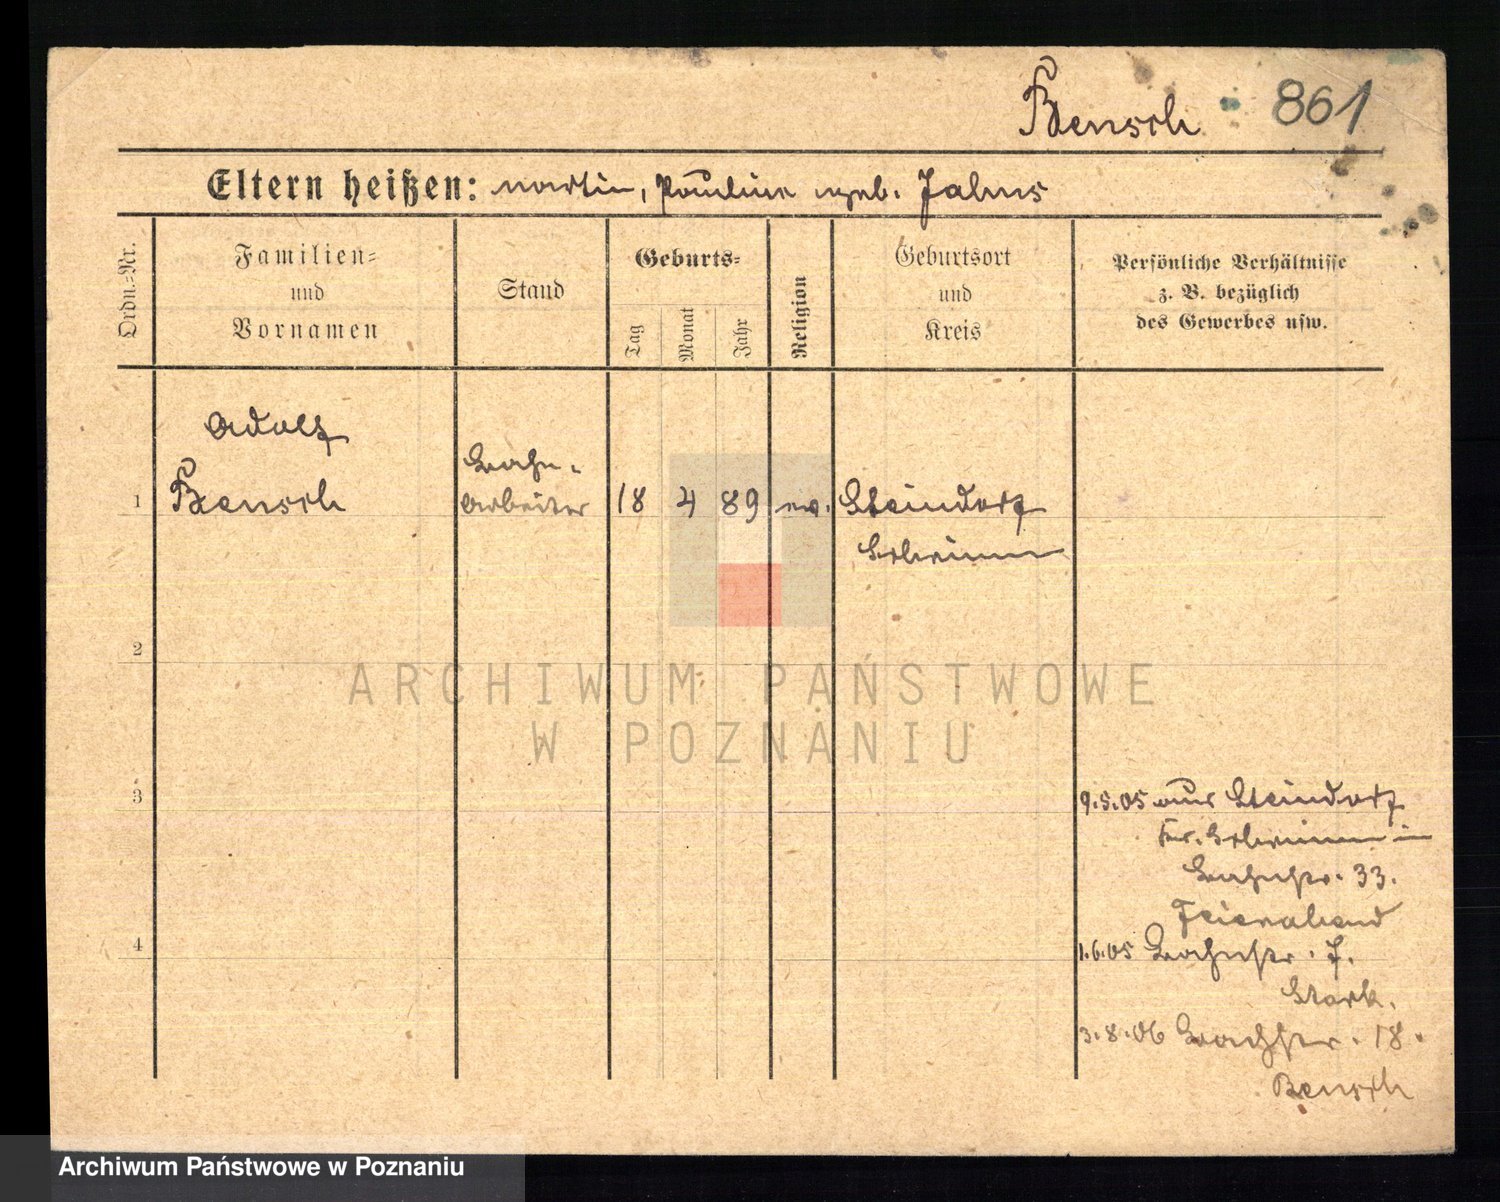 Bensch 861
Eltern heißen: Martin, Pauline geb. Jahns
Ordn.=Nr.
Familien=
und
Vornamen
Stand
Geburts=
Tag
Monat
Jahr
Religion
Geburtsort
und
Kreis
Persönliche Verhältnisse
z. B. bezüglich
des Gewerbes usw.
Adolf
1 Bensch
Bahn-
arbeiter
18 4 89 ev. Steindorf
Schrimm
2
3
9.5.05 aus Steindorf
Kr. Schrimm in
33.
Feierabend
4
1.6.05 7.
Stark.
3.8.06 18.
Bensch
ARCHIWUM PAŃSTWOWE
W POZNANIU
Archiwum Państwowe w Poznaniu